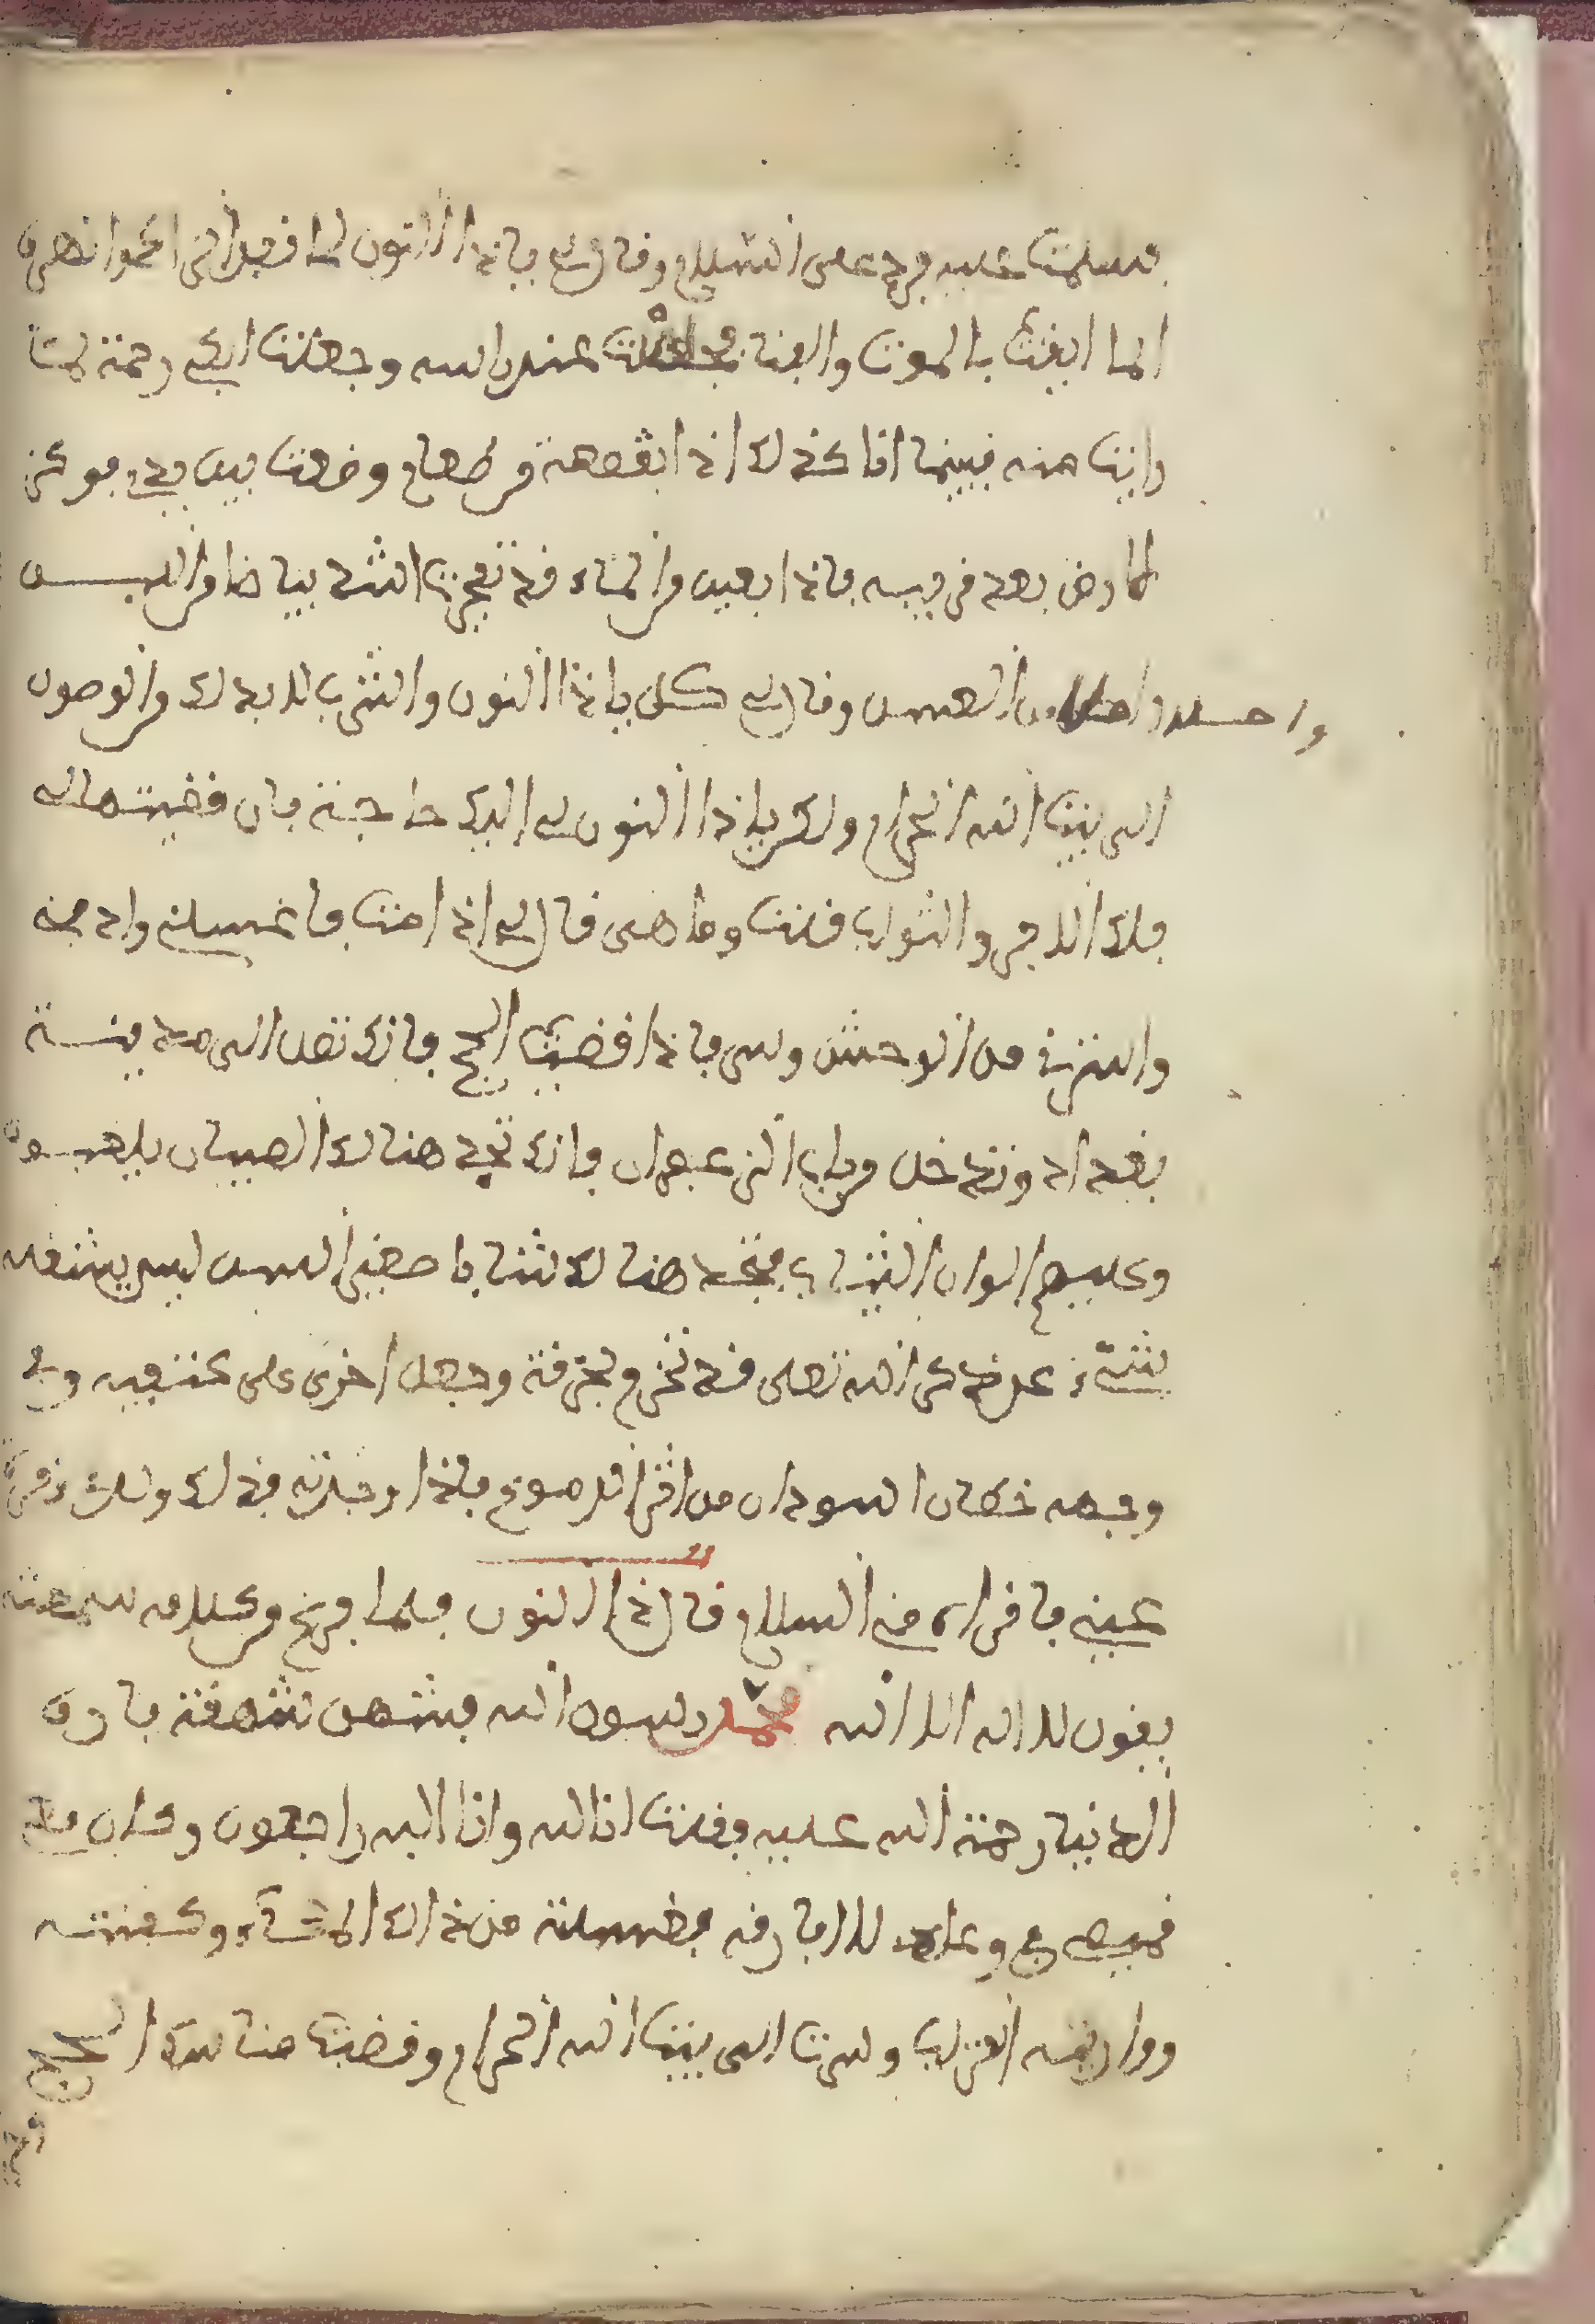 فسلمت عليه فرد على السلام وقال لي ياذا النون
الماء ايقنت بالموت والفنا فجلست عند راسه وجعلت ابكي رحمة لما
رايت منه فبينما انا كذلك اذا بقصعة من طعام وضعت بين يديه فوكز
الارض بعد فاذا بعين من الماء قد تفجرت اشد بياضا من اللبس
واحلا من العسل وقال لي كل ياذا النون واشرب لابد لك من الوصول
الى بيت الله الحرام ولكن ياذا النون لي اليك حاجة فان قضيتها لي
فلك الاجر والثواب فقلت وما هي قال لي اذا مت فاغسلني وادفني
واسترني من الوحش وسر فاذا قضيت الحج فانك تصل الى مدينة
بغداد وتدخل من باب الزعفران فانك تجد هنالك الصبيان يلعبون
وعليهم الوان الثياب فتجد هنالك شابا صغير السن ليس يشغله
شيء عن ذكر الله تعلى قد تحزم بخرقة وجعل اخرى على كتفيه وفي
وجهه خطان اسودان من اثر الدموع فاذا وجدته فذلك ولدي وقرة
عيني فاقراه مني السلام قال ذا النون فلما فرغ من كلامه سمعته
يقول لا اله الا الله محمد رسول الله فشهق شهقة فارق
الدنيا رحمة الله عليه فقلت انا لله وانا اليه راجعون وكان معي
قميص في وعاء لا افارقه فغسلته من ذالك الماء وكفنته
وواريته التراب وسرت الى بيت الله الحرام وقضيت مناسك الحج